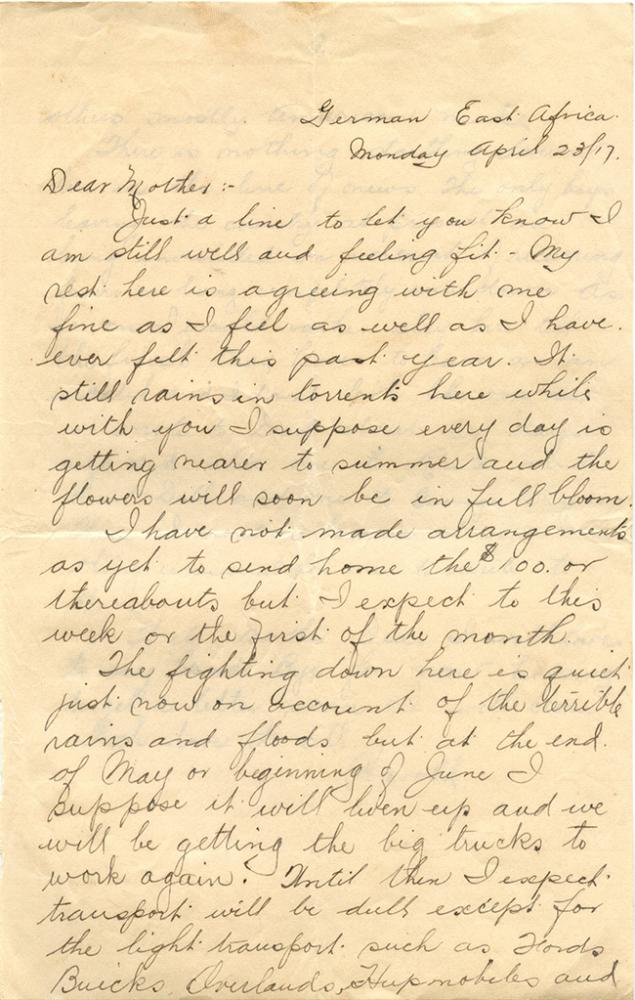 German East Africa.
Monday April 23/17.
Dear Mother:-
Just a line to let you know I
am still well and feeling fit - My
rest here is agreeing with me
fine as I feel as well as I have
ever felt this past year. It
still rains in torrents here while
with you I suppose every day is
getting nearer to summer and the
flowers will soon be in full bloom.
I have not made arrangements
as yet to send home the $100. or
thereabouts but I expect to this
week or the first of the month.
The fighting down here is quiet
just now on account of the terrible
rains and floods but at the end
of May or beginning of June I
suppose it will liven up and we
will be getting the big trucks to
work again. Until then I expect
transport will be dull except for
the light transport such as Fords
Buicks, Overlands, Hupmobiles and